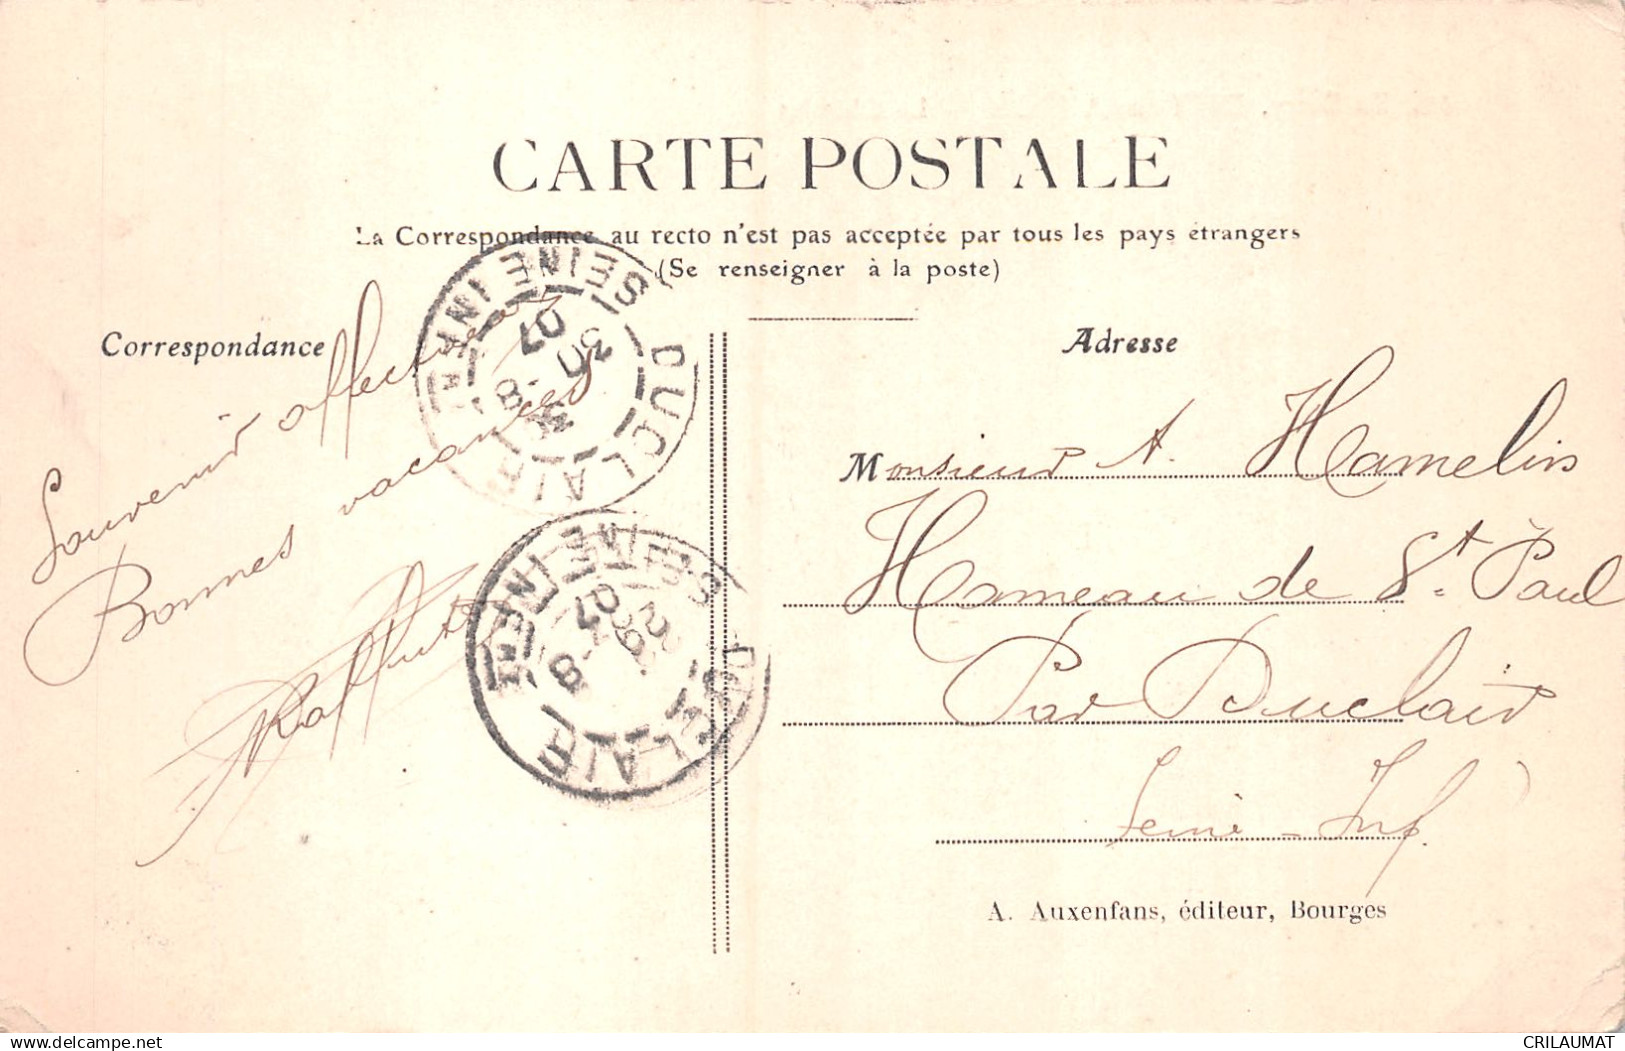 CARTE POSTALE
La Correspondance au recto n'est pas acceptée par tous les pays étrangers
(Se renseigner à la poste)
Correspondance
Souvenir affectueux
Bonnes vacances
Adresse
Monsieur A. Hamelin
Hameau de St. Paul
Par Duclair
Seine-Inf.
A. Auxenfans, éditeur, Bourges
DUCLAIR
SEINE INFRE
8
30
07
DUCLAIR
SEINE INFRE
8
07
www.delcampe.net
CRILAUMAT